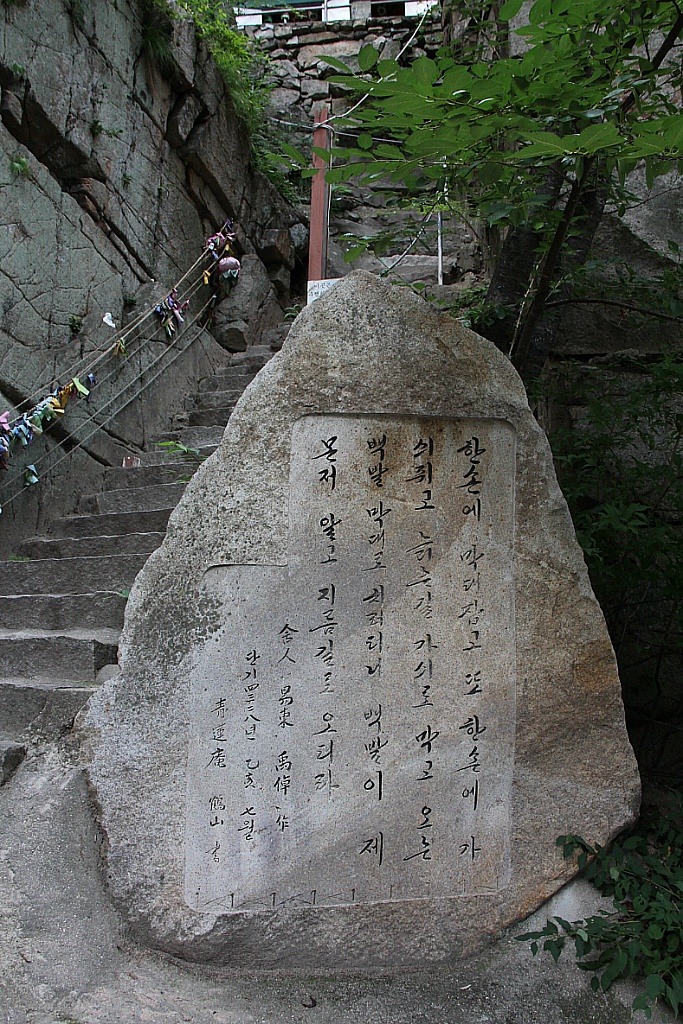 한손에 막대잡고 또 한손에 가
싀쥐고 늙는길 가싀로 막고 오는
백발 막대로 치려터니 백발이 제
몬저 알고 지름길로 오더라
舍人 易東 禹倬 作
단기四三二八년 乙亥 七월
青蓮庵 鶴山 書